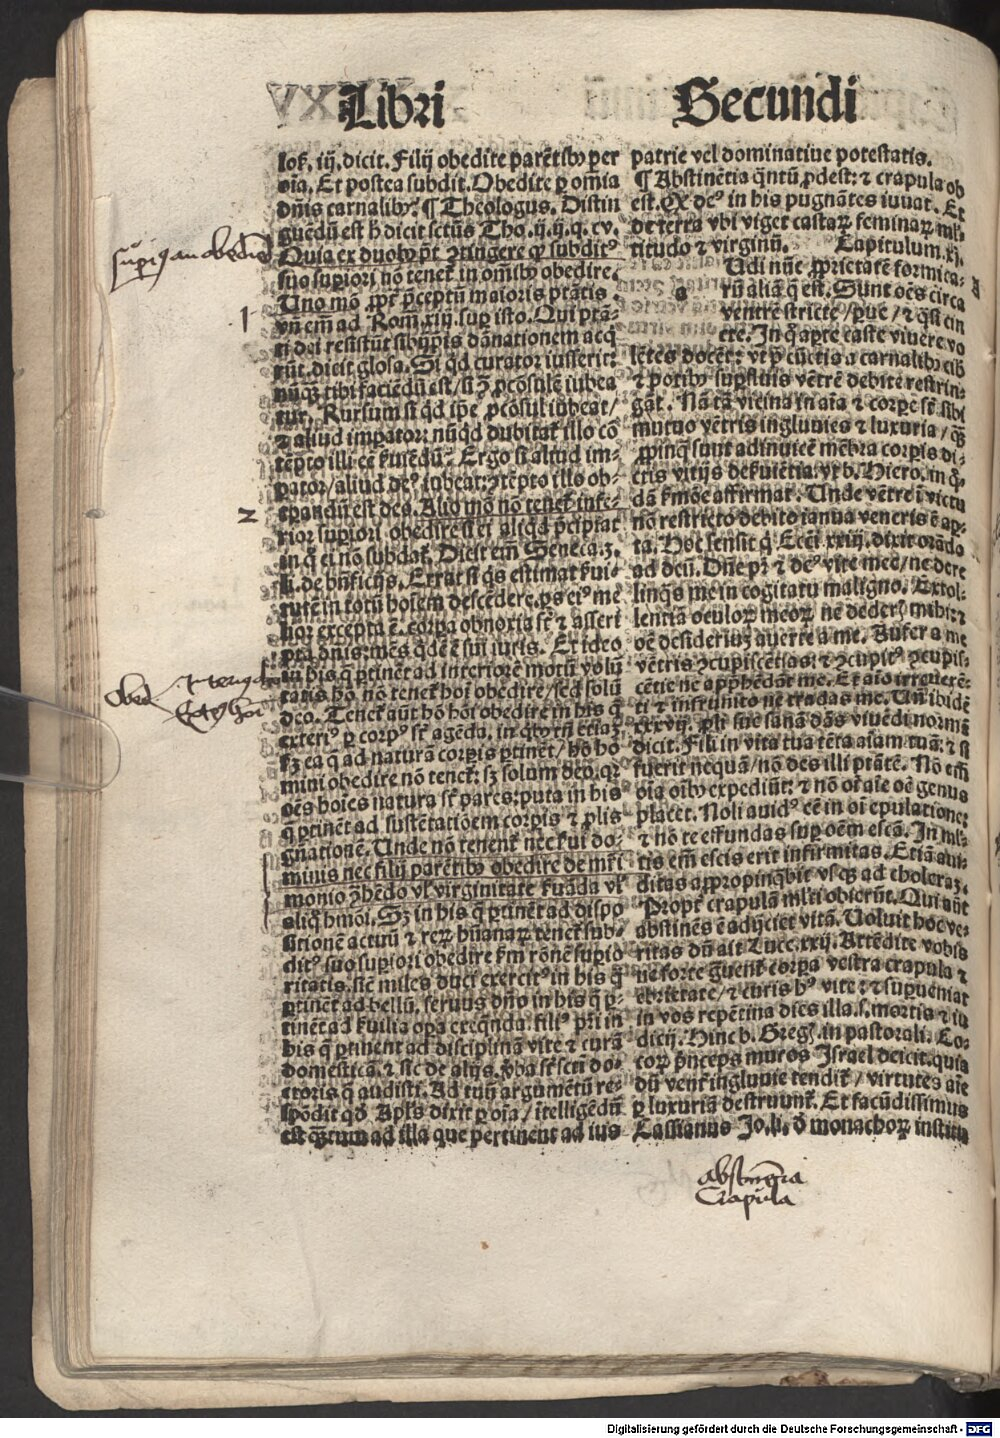 Libri Secundi
loß. iij. dicit. Filij obedite parẽtibꝰ per
oĩa. Et postea subdit. Obedite ꝑ om̃ia
dñis carnalibꝰ. ¶ Theologus. Distin
guẽdũ est ħ dicit sctũs Tho. ij. ij. q. cv.
Quia ex duobꝰ pt̃ ↄtingere qꝫ subditꝰ
suo supiori nõ tenet̃ in om̃ibꝰ obedire.
Uno mõ ꝓpt̃ p̃ceptũ maioris ptãtis.
vñ em̃ ad Rom̃. xiij. sup isto. Qui ptã-
ti dei resistũt sibijp̃is dãnationem acq̃
rũt. dicit glosa. Si qd curator iusserit:
nũqꝫ tibi faciẽdũ est / si ꝯ ꝓcõsulẽ iubea
tur. Rursum si qd ip̃e ꝓcõsul iubeat /
⁊ aliud impator: nũqd dubitat̃ illo cõ
tẽpto illi eẽ ẜuiẽdũ. Ergo si aliud im-
pator / aliud deꝰ iubeat: ↄtẽpto illo ob-
tẽpandũ est deo. Alio mõ nõ tenet̃ infe-
rior supiori obedire si ei aliqd p̃cipiat
in q̃ ei nõ subdat̃. Dicit em̃ Seneca. 3.
li. de bñficijs. Errat si q̃s estimat ẜui-
tutẽ in totũ hoĩem descẽdere. ps eiꝰ me
lior excepta ẽ. corpa obnoxia st̃ ⁊ asscri
pta dñis: mẽs qdẽ ẽ sui iuris. Et ideo
in his q̃ ptinẽt ad interiorẽ motũ volũ
tatis hõ nõ tenet̃ hoĩ obedire / sed solũ
deo. Tenet̃ aũt hõ hoĩ obedire in his q̃
exteriꝰ ꝑ corpꝰ st̃ agẽda. in qbꝰ tñ etiaꝫ
ẜm ea q̃ ad naturã corpis ptinẽt / hõ ho
mini obedire nõ tenet̃: sꝫ solum deo. qꝛ
oẽs hoĩes natura st̃ pares: puta in his
q̃ ptinẽt ad sustẽtatiõem corpis ⁊ ꝓlis
gñationẽ. Unde nõ tenent̃ nec ẜui do-
minis nec filij parẽtibꝰ obedire de mr̃i
monio ꝯhẽdo vl̃ virginitate ẜuãda vl̃
aliqͦ hmõi. Sꝫ in his q̃ ptinẽt ad dispo
sitionẽ actuũ ⁊ reꝝ hũanaꝝ tenet̃ sub-
ditꝰ suo supiori obedire ẜm rõnẽ supio
ritatis. sic̃ miles duci exercitꝰ in his q̃
ptinẽt ad bellũ. seruus dño in his q̃ p-
tinẽt ad ẜuilia opa exeq̃nda. filiꝰ pr̃i in
his q̃ ptinent ad disciplinã vite ⁊ curã
domesticã. ⁊ sic de alijs. ꝟba st̃ scti do-
ctoris q̃ audisti. Ad tuũ argumẽtũ re-
spõdit̃ qd Apl̃s dixit ꝑ oĩa / ĩtelligẽdũ
est qꝫtum ad illa que pertinent ad ius
patrie vel dominatiue potestatis.
¶ Abstinẽtia q̃ntũ ꝓdest: ⁊ crapula ob
est. Et deꝰ in his pugnãtes iuuat. Et
de terra vbi viget castaꝝ feminaꝝ ml̃-
titudo ⁊ virginũ. Capitulum. xj.
a Udi nũc ꝓprietatẽ formica-
rũ aliã q̃ est. Sunt oẽs circa
ventrẽ stricte / puc / ⁊ q̃si cin
cte. In qͦ apte caste viuere vo
lẽtes docẽt: vt ꝑ cũctia a carnalibꝰ cib
⁊ potibꝰ supfluis vẽtrẽ debite restrin-
gãt. Nã tã vicina in aĩa ⁊ corpe st̃ sibi
mutuo vẽtris ingluuies ⁊ luxuria / qꝫ
ꝓpinq̃ sunt adinuicẽ mẽbra corpis di-
ctis vitijs deẜuiẽtia. vt b. Hiero. in q̃-
dã ẜmõe affirmat. Unde vẽtre ĩ victu
nõ restricto debito ianua veneris ẽ ap-
ta. Hoc sensit q̃ Ecc̃i. xxiij. dixit orãdo
ad deũ. Dñe pr̃ ⁊ deꝰ vite mee / ne dere
linq̃s me in cogitatu maligno. Extol-
lentiã oculoꝝ meoꝝ ne dederꝭ mihi: ⁊
oẽ desideriuꝫ auerte a me. Aufer a me
vẽtris ↄcupiscẽtias: ⁊ ↄcupitꝰ ↄcupis-
cẽtie ne app̃hẽdãt me. Et aĩo irreuerẽ-
ti ⁊ infrunito ne tradas me. Uñ ibidẽ
xxxvij. ꝓli sue sanã dãs viuẽdi normã
dicit. Fili in vita tua tẽta aĩam tuã: ⁊ si
fuerit nequã / nõ des illi ptãtẽ. Nõ em̃
oĩa oĩbꝰ expediũt: ⁊ nõ oĩ aĩe oẽ genus
placet. Noli auidꝰ eẽ in oĩ epulatione:
⁊ nõ te effundas sup oẽm escã. In ml̃-
tis em̃ escis erit infirmitas. Et auiditas
ditas appropinq̃bit vsqꝫ ad choleraꝫ.
Propt̃ crapulã ml̃ti obierũt. Qui aũt
abstinẽs ẽ adijciet vitã. Uoluit hoc ve-
ritas dũ ait Luce. xxj. Attẽdite vobis
ne forte g̃uent̃ corpa vestra crapula ⁊
ebrietate / ⁊ curis hꝰ vite: ⁊ supueniat
in vos repẽtina dies illa. s. mortis ⁊ iu
dicij. Hinc b. Gregꝭ. in pastorali. Co-
coꝝ p̃nceps muros Israel deicit. quia
dũ vent̃ ingluuie tendit̃ / virtutes aĩe
ꝑ luxuriã destruunt̃. Et facũdissimus
Cassianus Io. li. đ monachoꝝ institu
1
2
abstinẽtia
Crapula